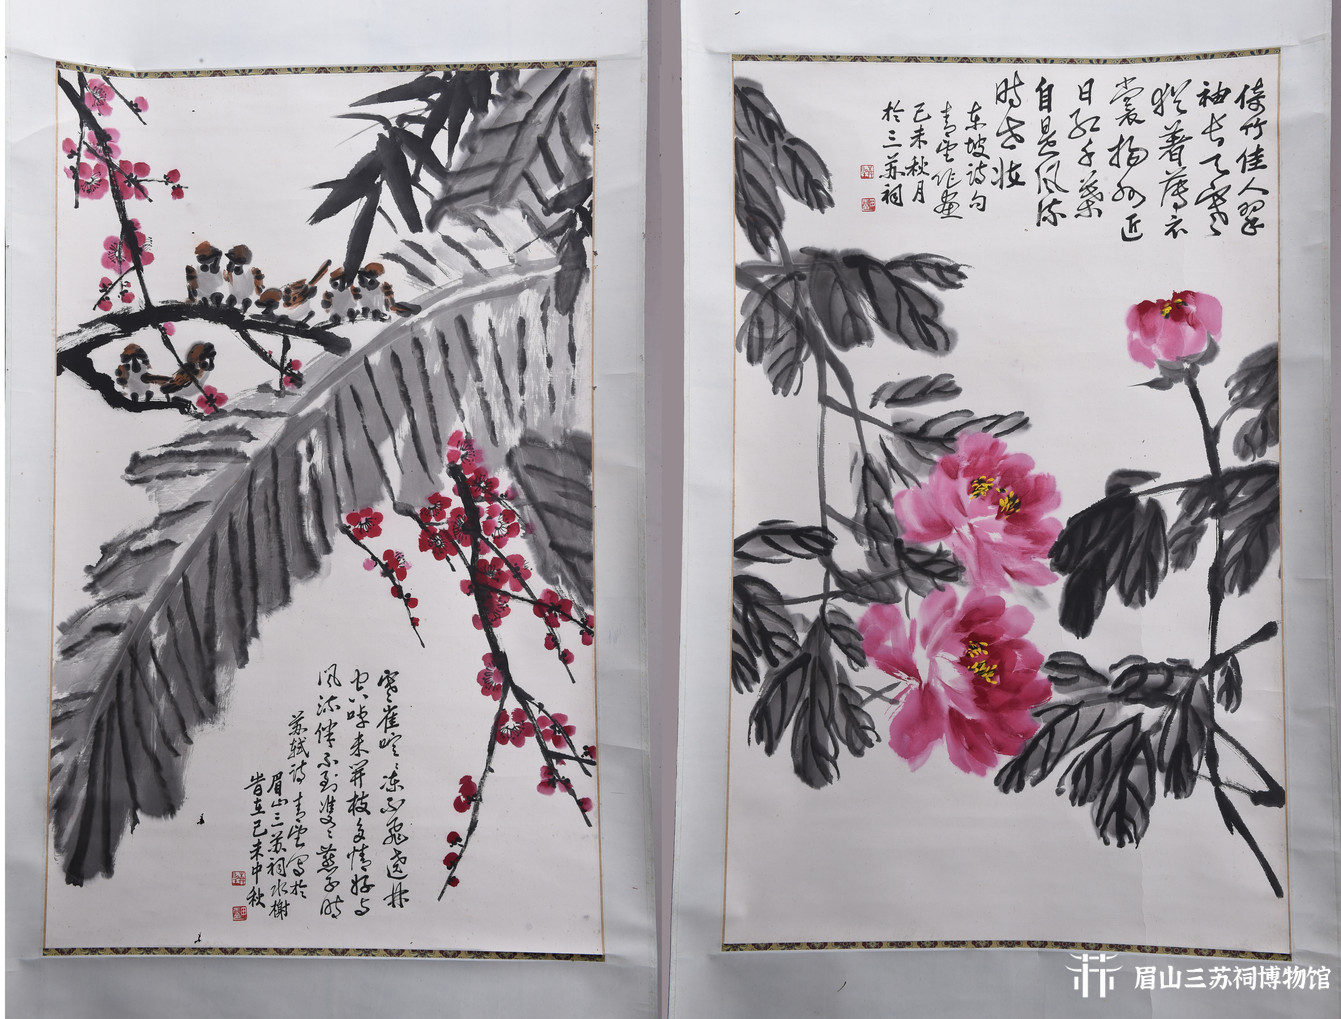 寒雀喧〻冻不飞遶林
空啅未開枝多情好与
风流伴不到双〻燕子时
苏轼诗 青云写於
眉山三苏祠水榭
旹在己未中秋
倚竹佳人翠
袖长天寒
犹着薄衣
裳扬州近
日红千葉
自是风流
时世妆
东坡诗句
青云作画
己未秋月
於三苏祠
眉山三苏祠博物馆